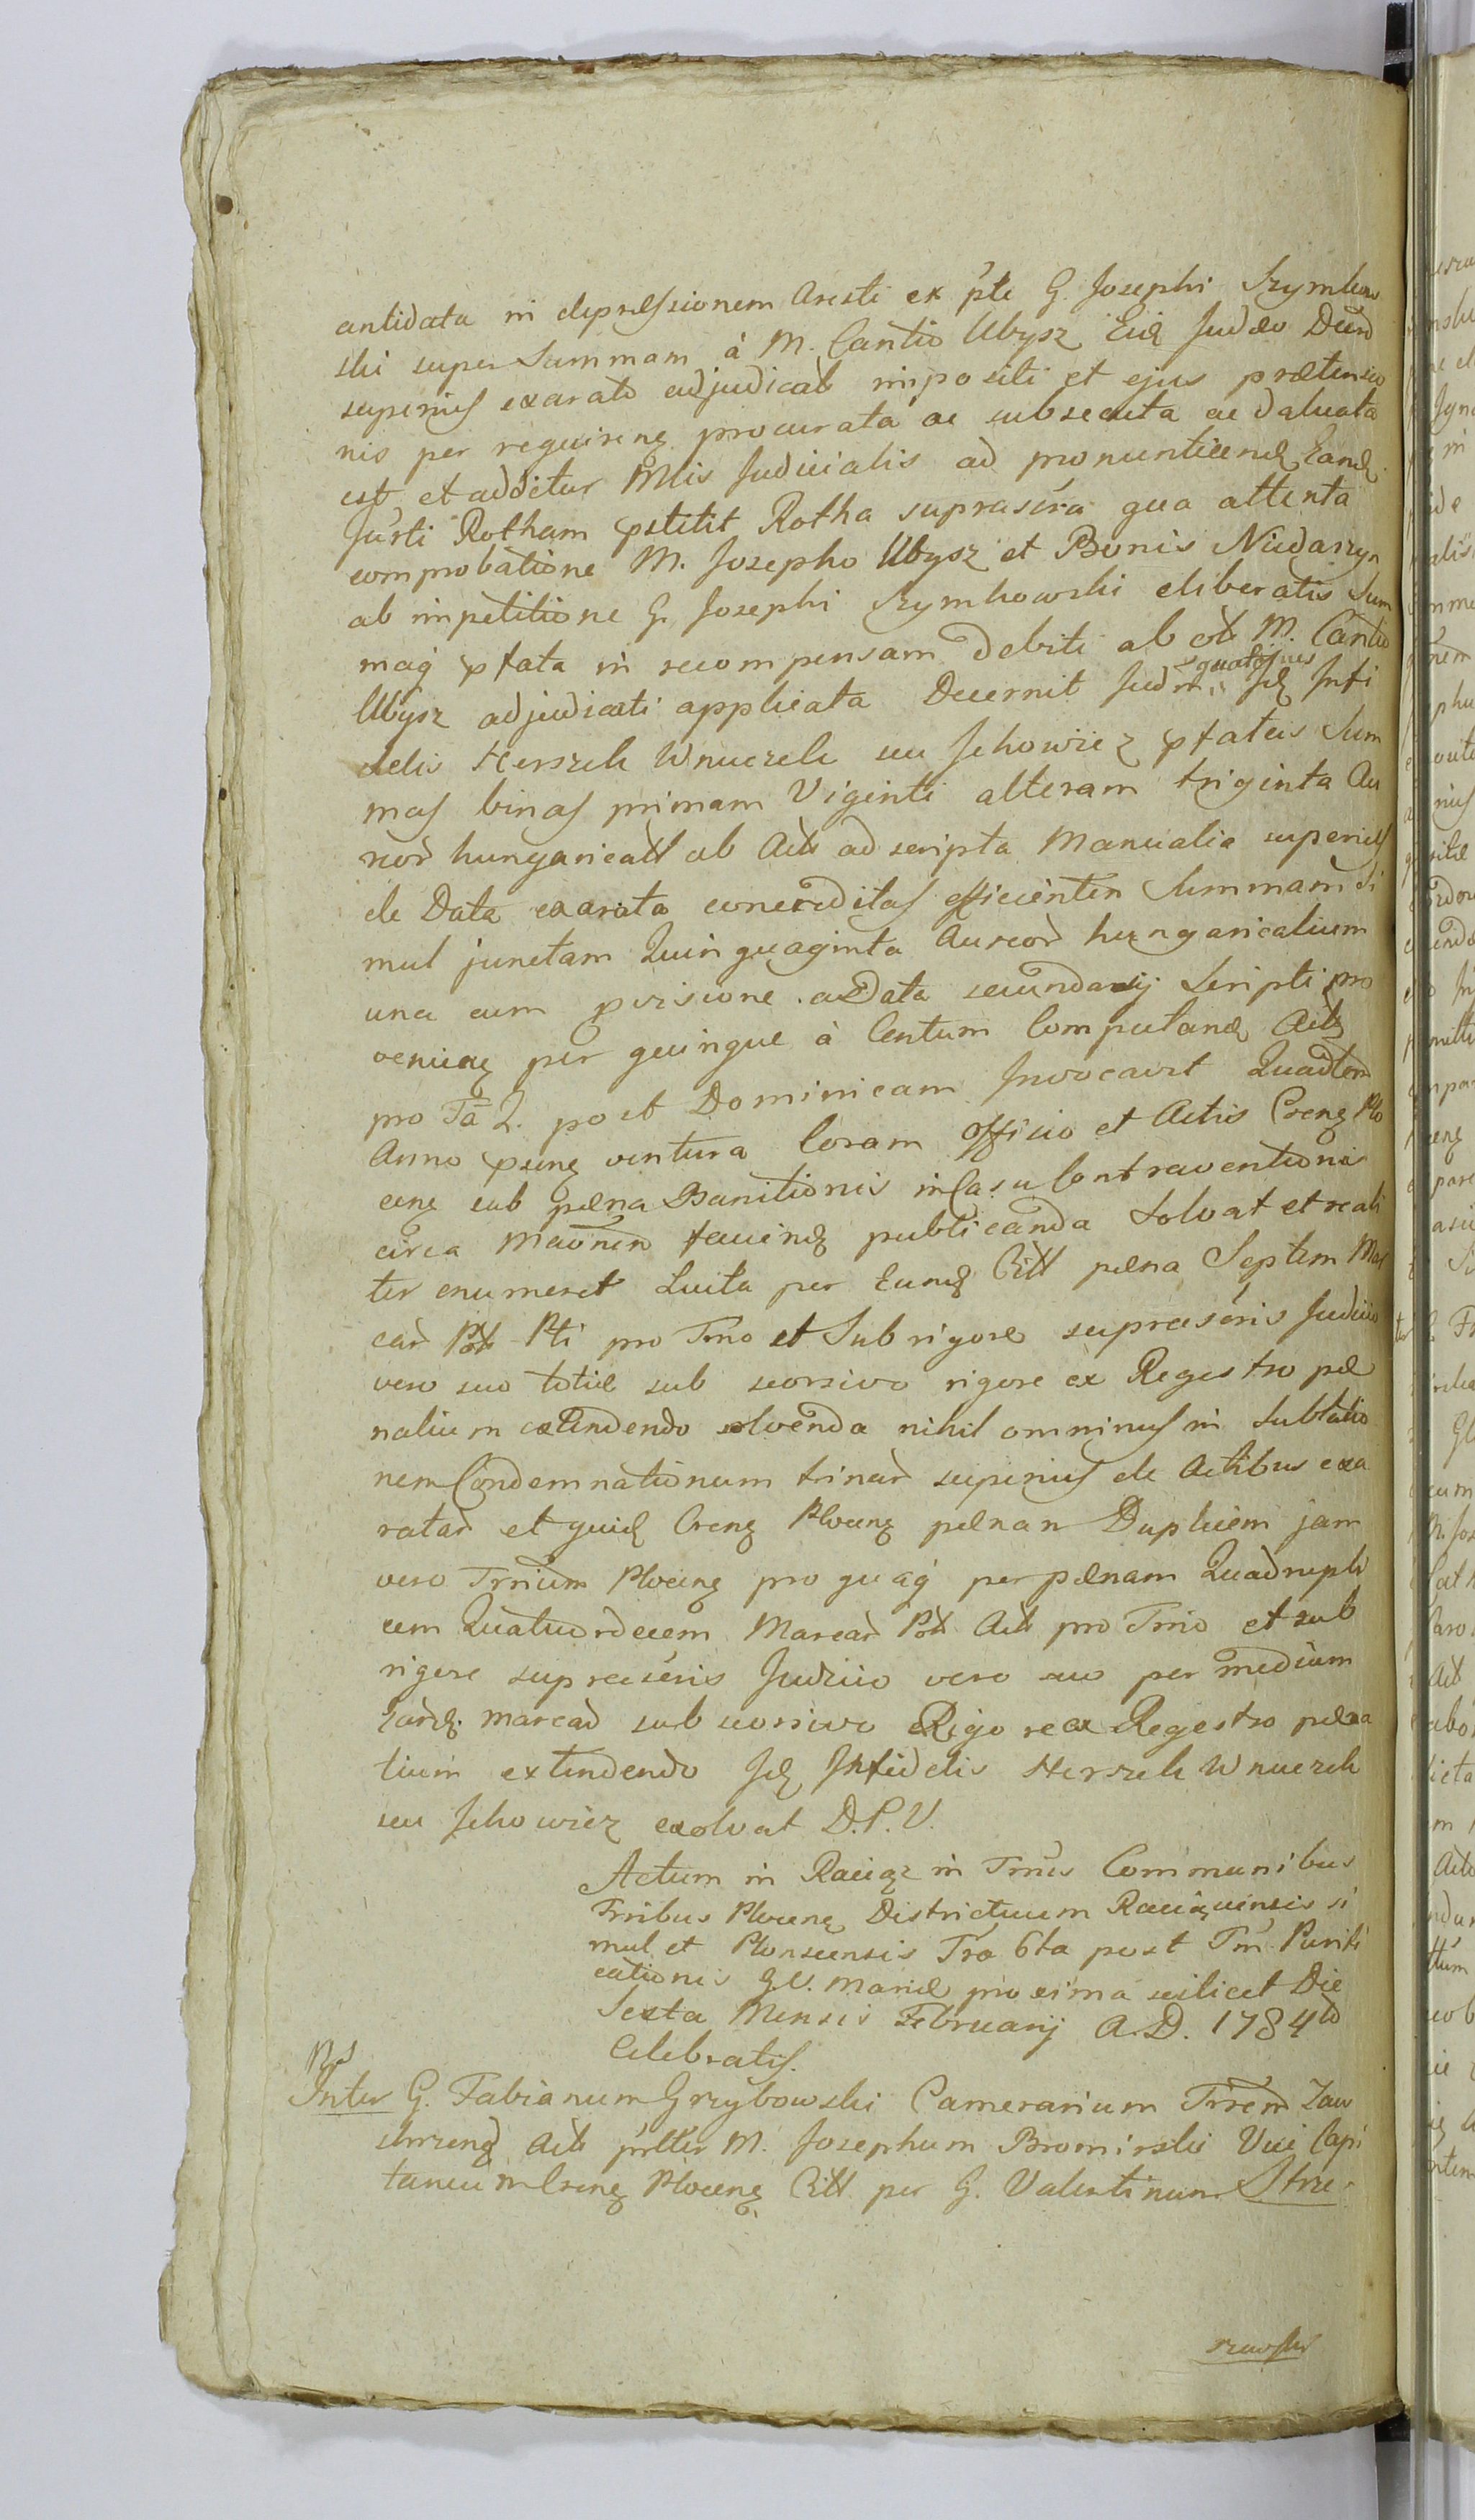 antidata in depressionem Aresti ex pte G. Josephi Szymkow
ski super Summam à M. Cantio Ubysz Eid Judæo Deud
superius exarato adjudicat impositi et ejus prætensio
nis per requireng procurata ac subsecuta ac
est et additur Mlis Judicialis ad pronuntiend Eand
Jurti Rotham pstitit Rotha suprascra qua attenta
comprobatione M. Josepho Ubysz et Bonis Niedarzyn
ab impetitione G. Josephi Szymkowski eliberatis Sum
maq pfata in recompensam Debiti ab M. Cantio
quatenus
Ubysz adjudicati applicata Decernit Judm Id Infi
delis Herszek Wnuczek seu Jchowicz pfatas Sum
mas binas primam Viginti alteram triginta Au
reor hungaricall ab Act ad scripta Manualia superius
de Data exarata concreditas efficienten Summam Si
mul junctam Quinquaginta Aureor hungaricalium
una cum pvisione a Data secundarij Scripti pro
venieng per quinque à Centum Computand Act
pro Fa 2. post Dominicam Invocavit Quadtem
Anno pseng ventura Coram Officio et Actis Creng Plo
ceng sub pæna Banitionis in Casu Contraventionis
circa Maonem faciend publicanda Solvat et reali
ter enumeret Luita per Eund Citt pæna Septem Mar
car Plt Pti pro Trno et Sub rigore suprascris Judicio
vero suo totid sub seorsivo rigore ex Regestro pæ
nalium extendendo solvenda nihilominus in Sublatio
nem Condemnationum trinar superius de Actibus exa
ratar et quid Creng Ploceng pænam Duplicem jam
vero Trrium Ploceng pro quaq per pænam Quadrupli
cem Quatuordecem Marcar Plt Act pro Trno et sub
rigore suprascris Judicio vero suo per medium
Eard marcar sub seorsivo Rigore ex Regestro pæna
lium extendendo Id Infidelis Herszek Wnuczek
seu Jchowicz exolvat D.P.V.
Actum in Raciąz in Trnis Communibus
Trribus Ploceng Districtuum Raciązensis si
mul et Plonscensis Fra 6ta post Fm Purifi
cationis B.V. Mariæ proxima scilicet Die
Sexta Mensis Februarij A.D. 1784to
Celebratis.
Inter G. Fabianum Grzybowski Camerarium Trrem Zaw
skrzeng Act inter M. Josephum Bromirski Vice Capi
taneum Creng Ploceng Citt per G. Valentinum Strze
szewski